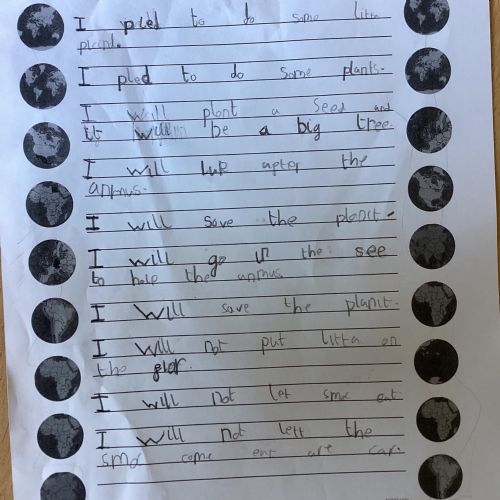 I pled to do some litta
plcnd.
I pled to do some plants.
I will plont a Seed and
it will be a big tree.
I will luk after the
anmus.
I will save the plenit.
I will go in the see
to halp the anmus
I will save the planit.
I will not put litta on
the flor.
I will not let smo out
I will not lett the
smo come out are car.